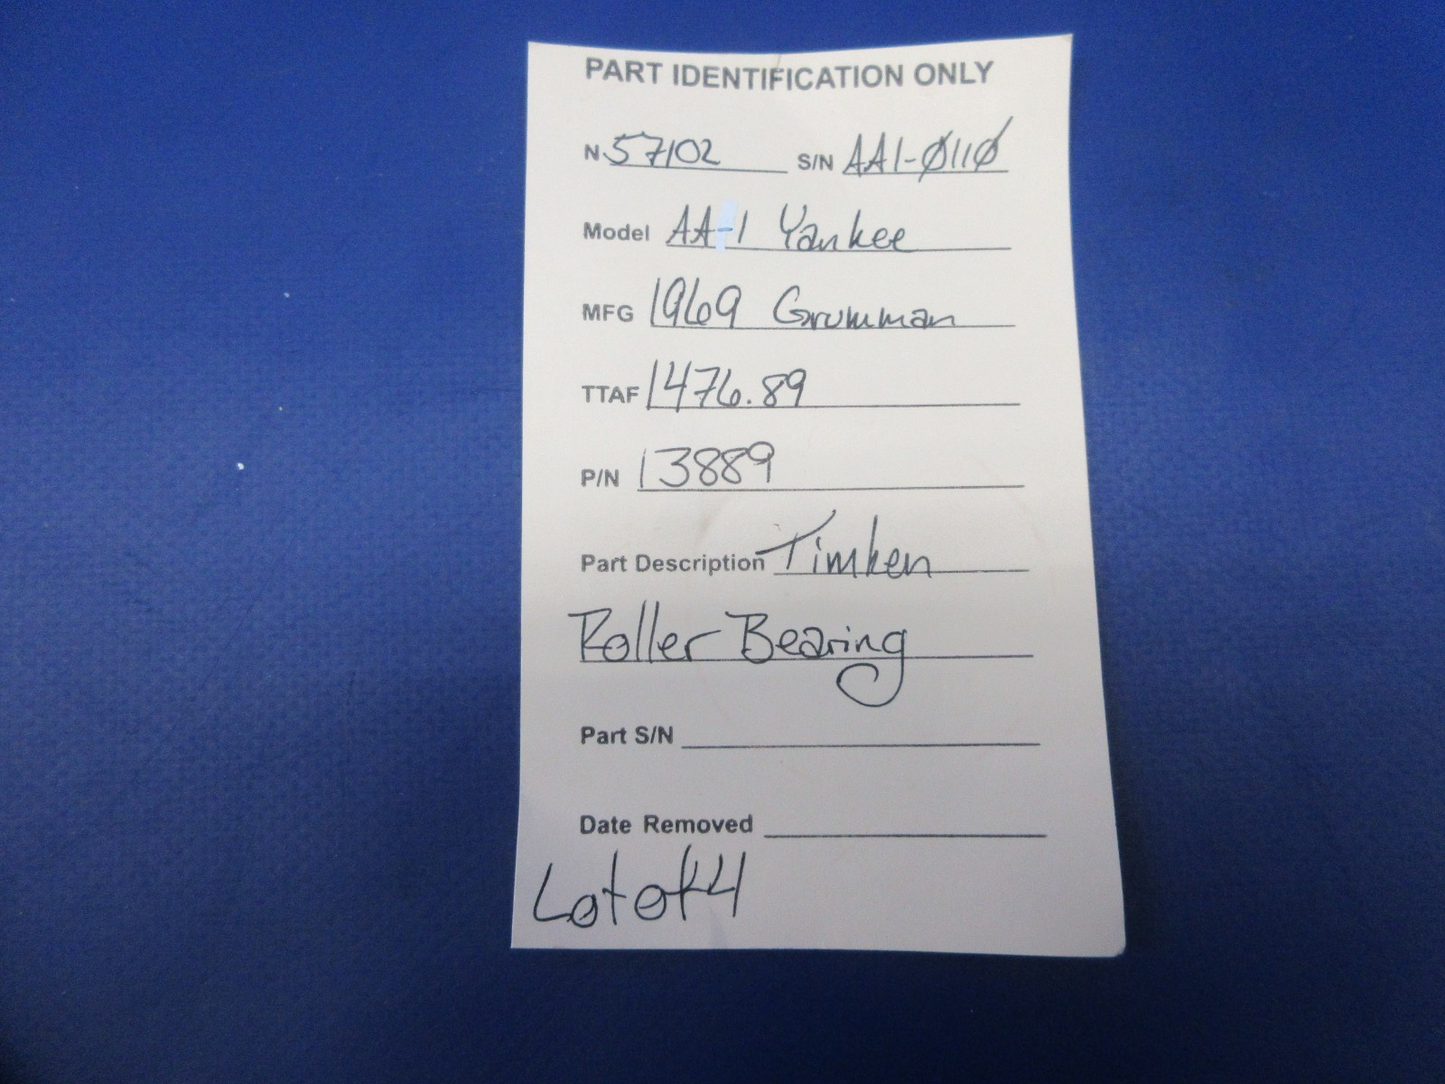 PART IDENTIFICATION ONLY
N 57102 S/N AA1-0110
Model AA-1 Yankee
MFG 1969 Grumman
TTAF 1476.89
P/N 13889
Part Description Timken
Roller Bearing
Part S/N
Date Removed
Lot of 4